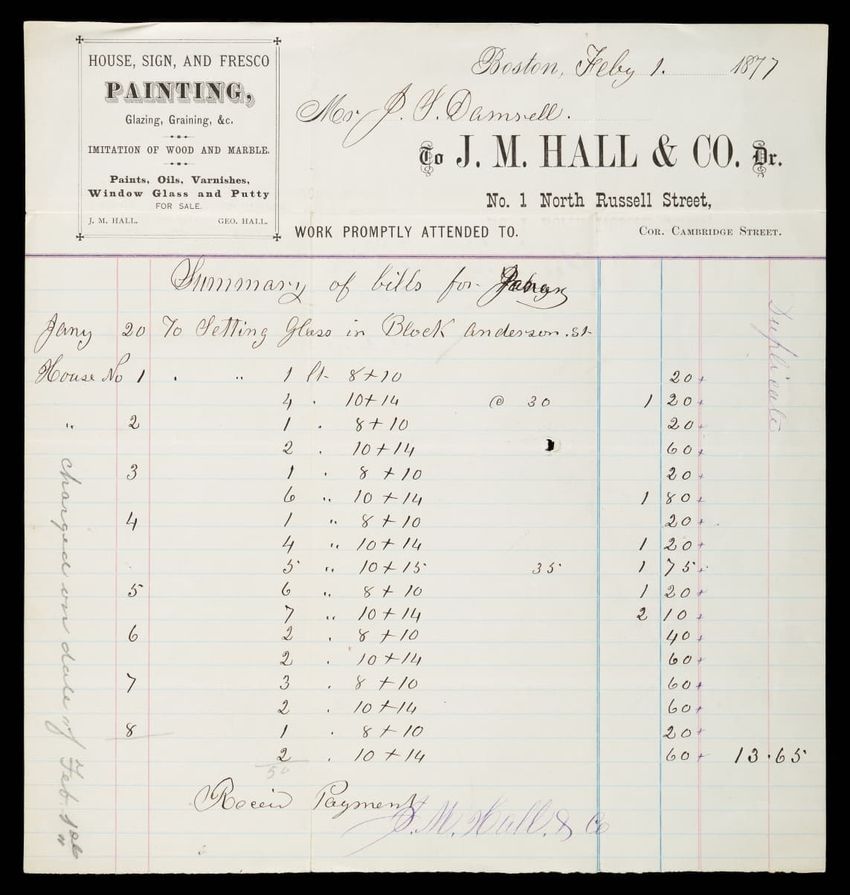 HOUSE, SIGN, AND FRESCO
PAINTING,
Glazing, Graining, &c.
IMITATION OF WOOD AND MARBLE.
Paints, Oils, Varnishes,
Window Glass and Putty
FOR SALE.
J. M. HALL. GEO. HALL.
Boston, Feby 1. 1877
Mr J. S. Damrell.
To J. M. HALL & CO. Dr.
No. 1 North Russell Street,
WORK PROMPTLY ATTENDED TO. COR. CAMBRIDGE STREET.
Summary of bills for
Jany 20 To Setting Glass in Block Anderson. st
House No 1 . " 1 lt 8+10 20
4 . 10+14 @ 30 1 20
" 2 1 . 8+10 20
2 . 10+14 60
3 1 . 8+10 20
6 " 10+14 1 80
4 1 " 8+10 20
4 " 10+14 1 20
5 " 10+15 35 1 75
5 6 " 8+10 1 20
7 " 10+14 2 10
6 2 . 8+10 40
2 . 10+14 60
7 3 . 8+10 60
2 . 10+14 60
8 1 . 8+10 20
2 . 10+14 60 13.65
50
Receiv Payment
J. M. Hall. & Co
Duplicate
charged on date of Feb. 1st